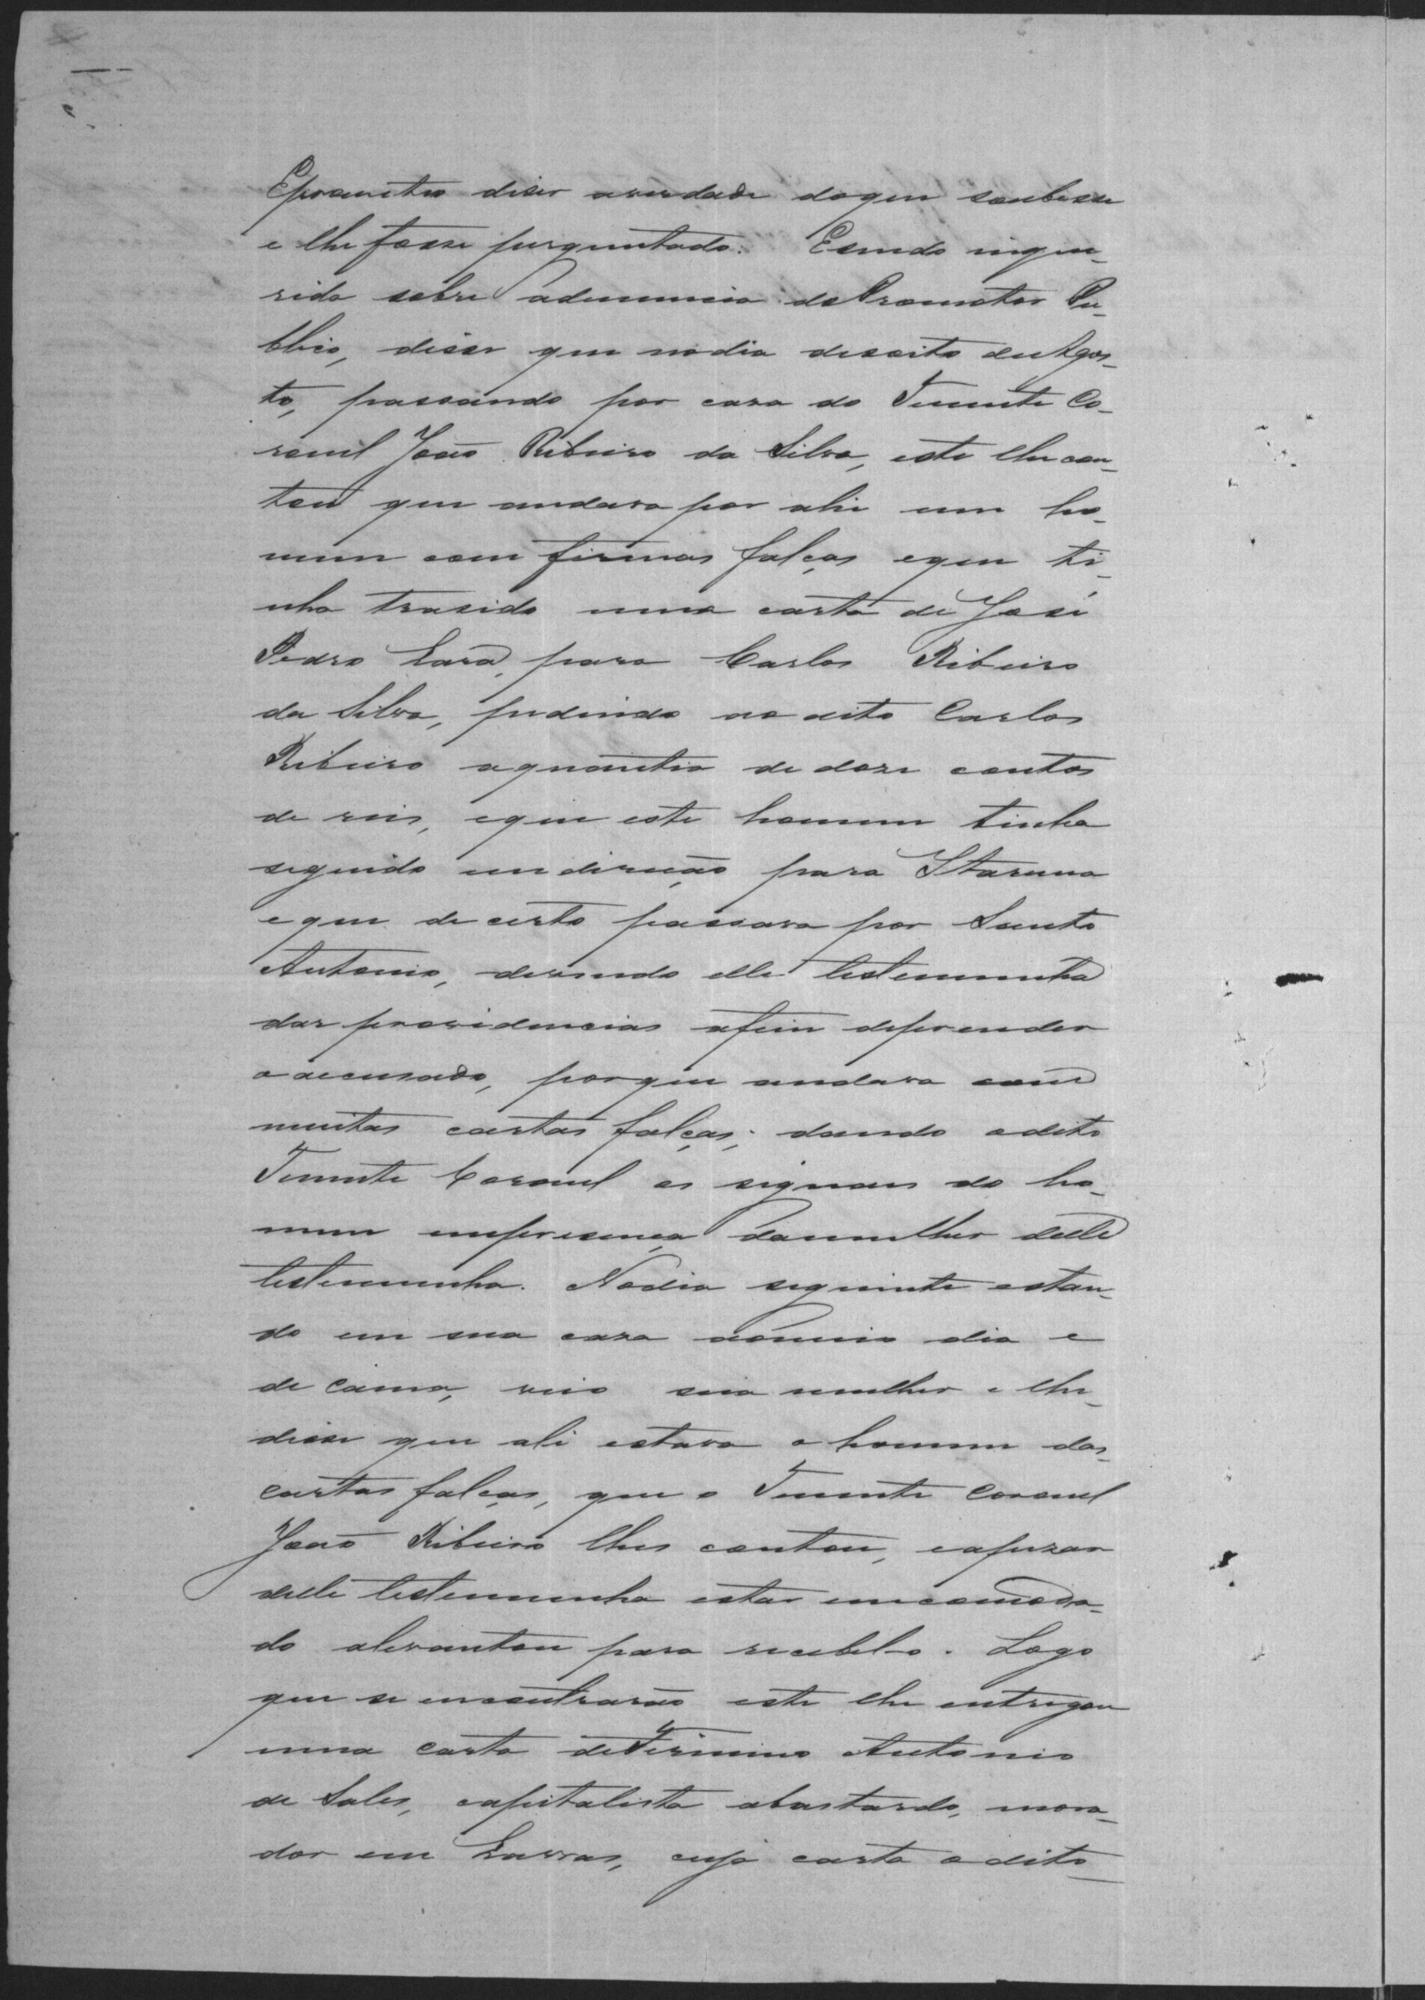 Eprometteo diser averdade doque soubesse
e lhe fosse perguntado. Esendo inque-
rido sobre adenuncia do Promotor Pu-
blico, disse que nodia desoito de Agos-
to, passando por casa do Tenente Co-
ronel João Ribeiro da Silva, este lhe con-
tou que andava por ahi um ho-
mem com firmas falças eque ti-
nha trasido uma carta de José
Pedro Lara, para Carlos Ribeiro
da Silva, pedindo ao dito Carlos
Ribeiro aquantia de doze contos
de reis, eque este homem tinha
seguido em direcção para Itaruna
eque de certo passava por Santo
Antonio, devendo elle testemunha
dar providencias afim deprender
o accusado, porque andava com
muitas cartas falças; dando odito
Tenente Coronel os signaes do ho-
mem empresença damulher delle
testemunha. Nodia seguinte estan-
do em sua casa aomeio dia e
de cama, veio sua mulher e lhe
disse que ali estava o homem das
cartas falças, que o Tenente Coronel
João Ribeiro lhes contou, eapezar
delle testemunha estar emcomoda-
do alevantou para recebel-o. Logo
que se encontrarão este lhe entregou
uma carta de Firmino Antonio
de Sales, capitalista abastardo, mora-
dor em Lavras, cuja carta o dito